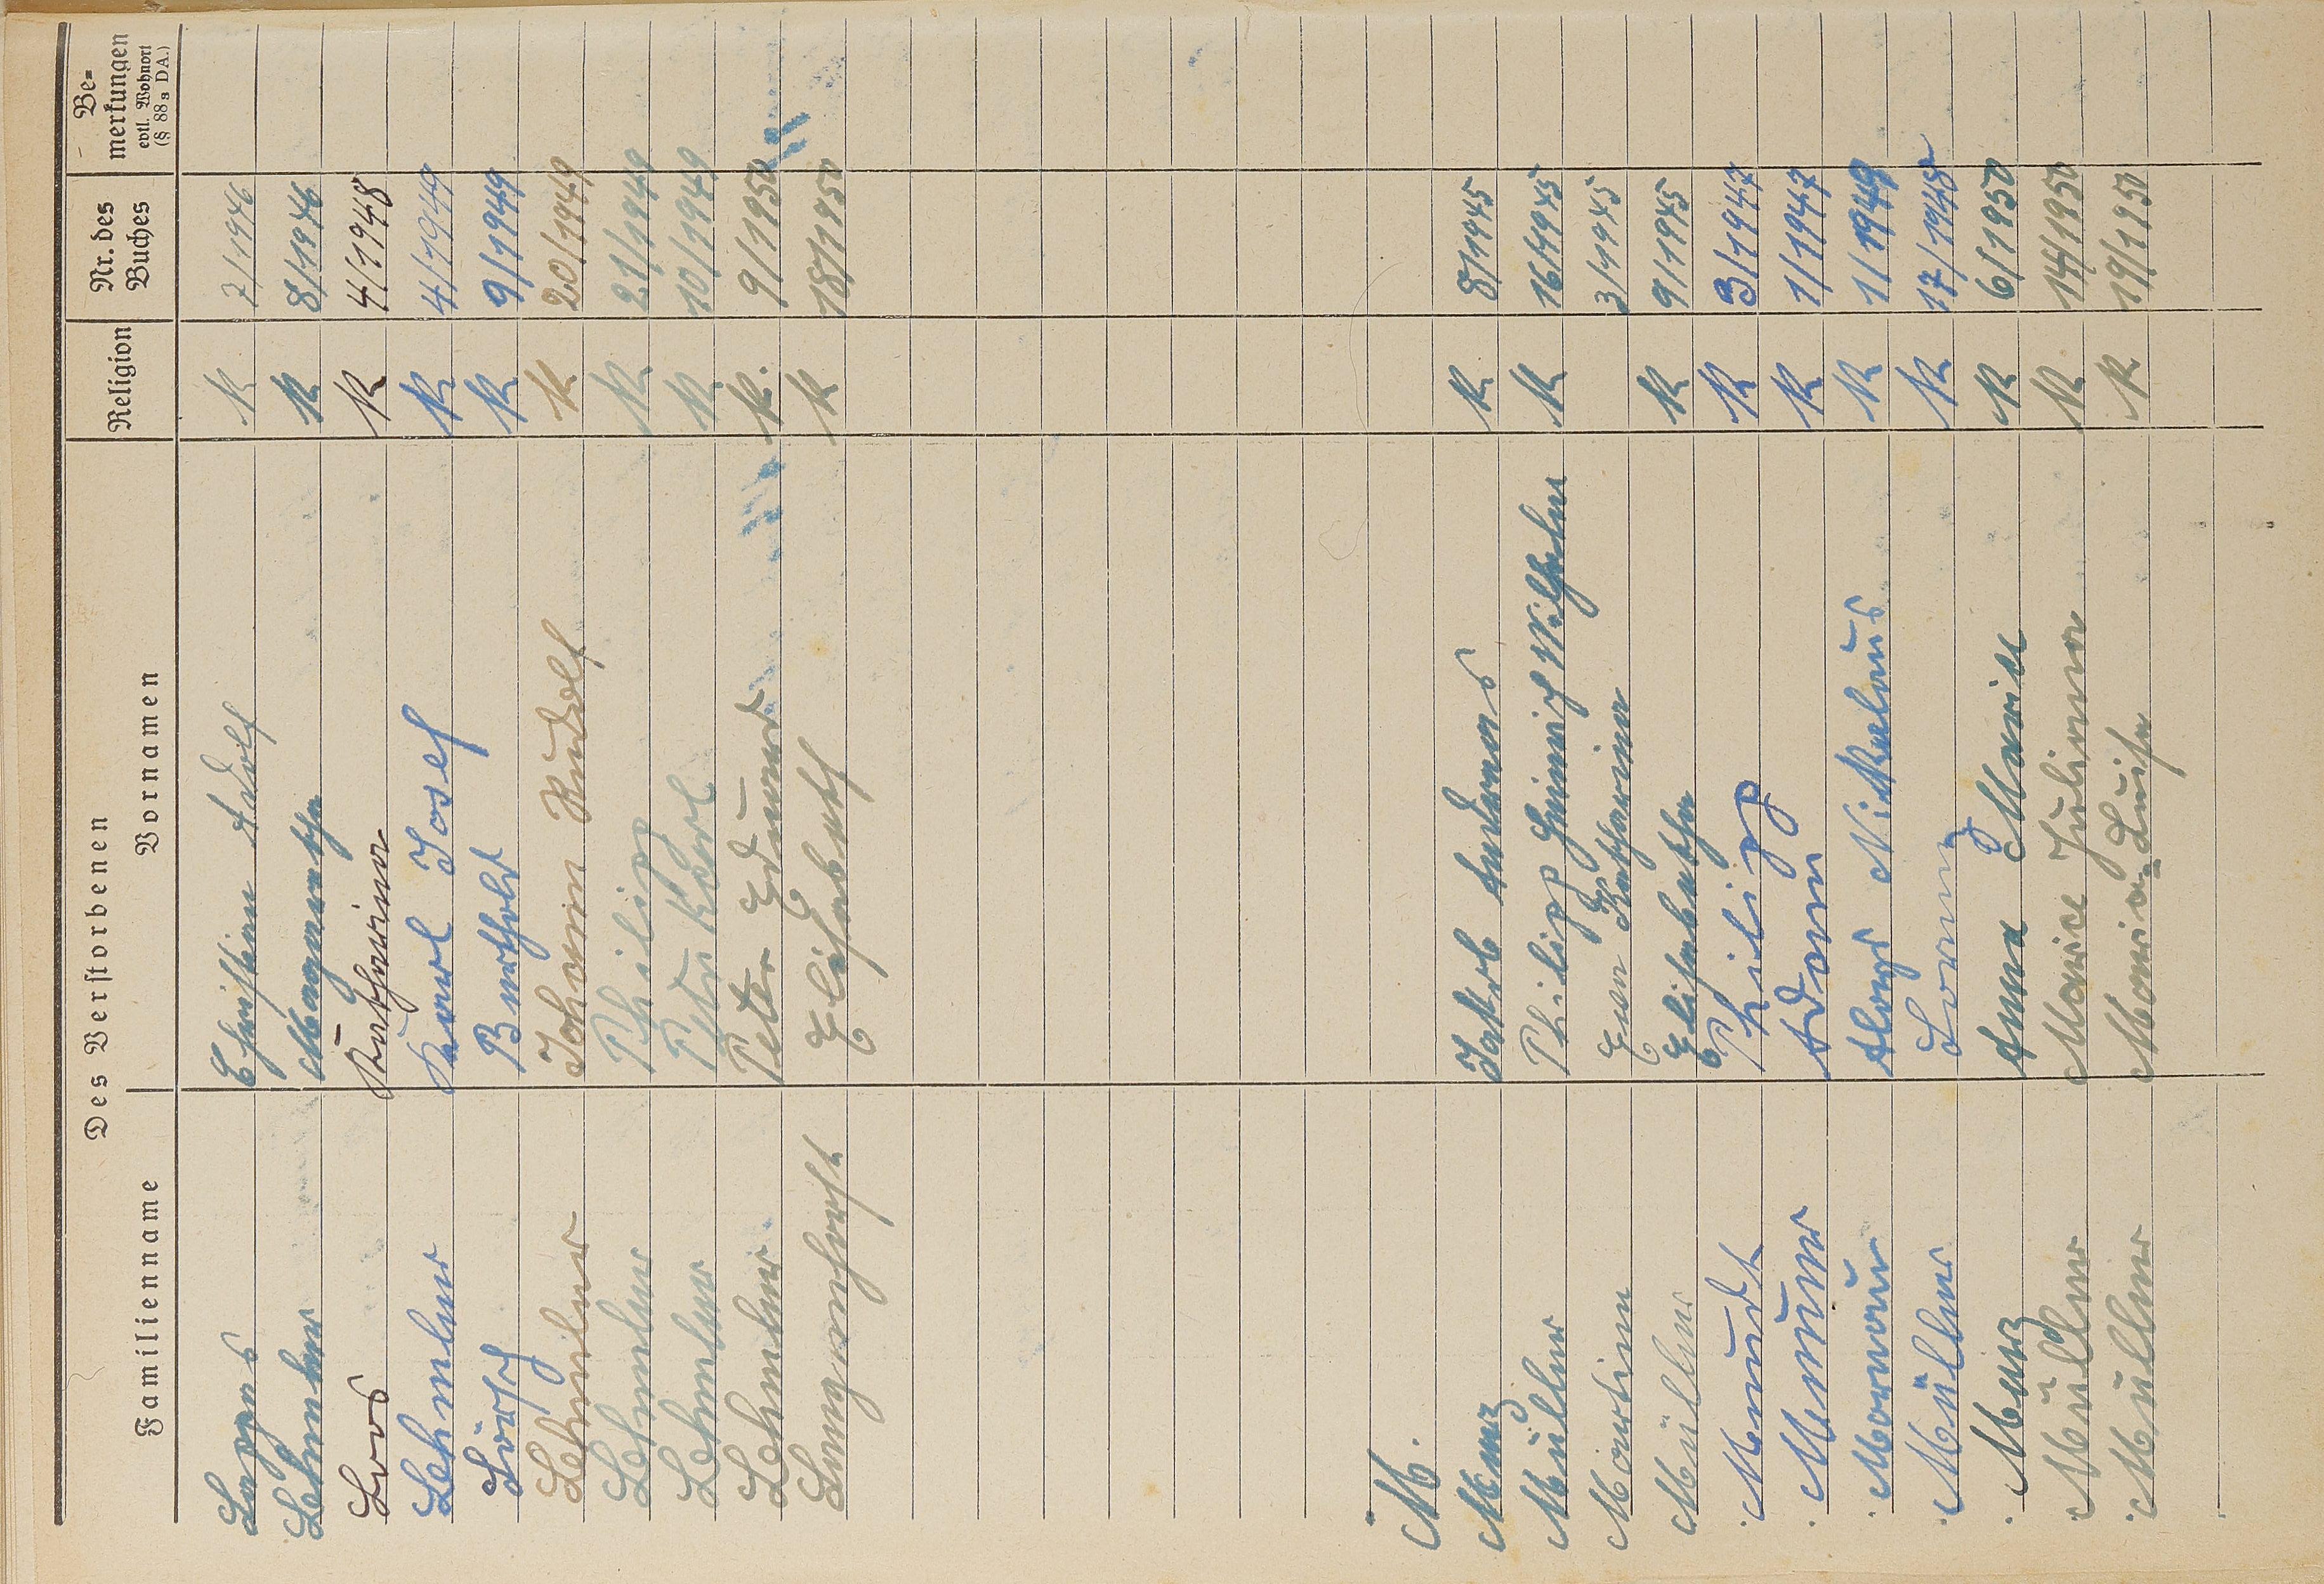 Des Verstorbenen
Familienname Vornamen Religion Nr. des Buches Be=merkungen evtl. Wohnort (§ 88 3 DA.)
Christian Adolf K 7/1946
Lehmler Margarethe K 8/1946
Loos Katharina K 4/1948
Lehmler Karl Josef K 4/1949
Lörsch Berthold K 9/1949
Lehmler Johann Rudolf K 20/1949
Lehmler Philipp K 21/1949
Lehmler Peter Karl K. 10/1949
Lehmler Peter Eduard K. 9/1950
Langenhorst Elisabeth K 18/1950
M.
Menz Jakob Andreas K. 8/1945
Müller Philipp Heinrich Wilhelm K 16/1945
Martini Eva Katharina 3/1945
Müller Elisabetha K 9/1945
Mundt Philipp K 3/1947
Adam K 1/1947
Aloys Nikolaus K 1/1949
Müller Lorenz K 17/1948
Anna Maria K 6/1950
Müller Maria Juliana K 14/1950
Müller Maria=Luise K 19/1950